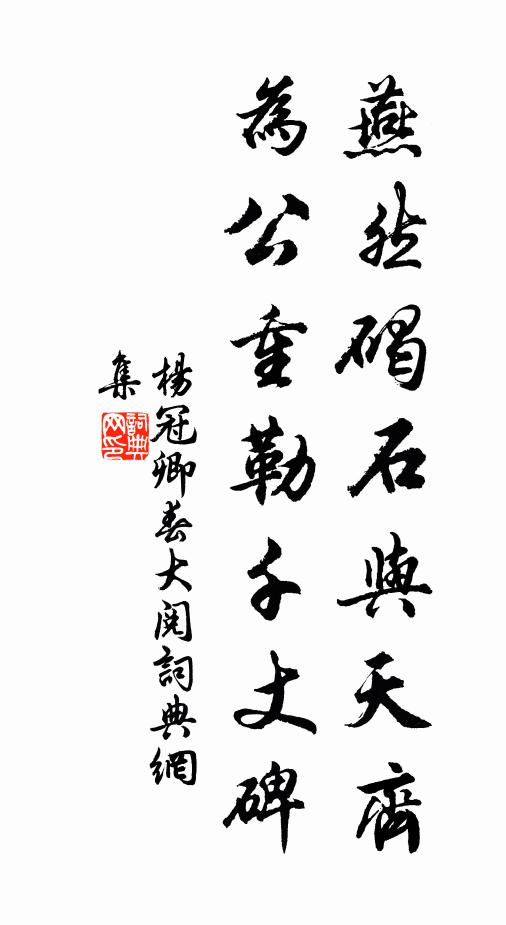 燕然碣石與天齊
為公重勒千丈碑
楊冠卿春大閱詞典網
集
詞典
网印